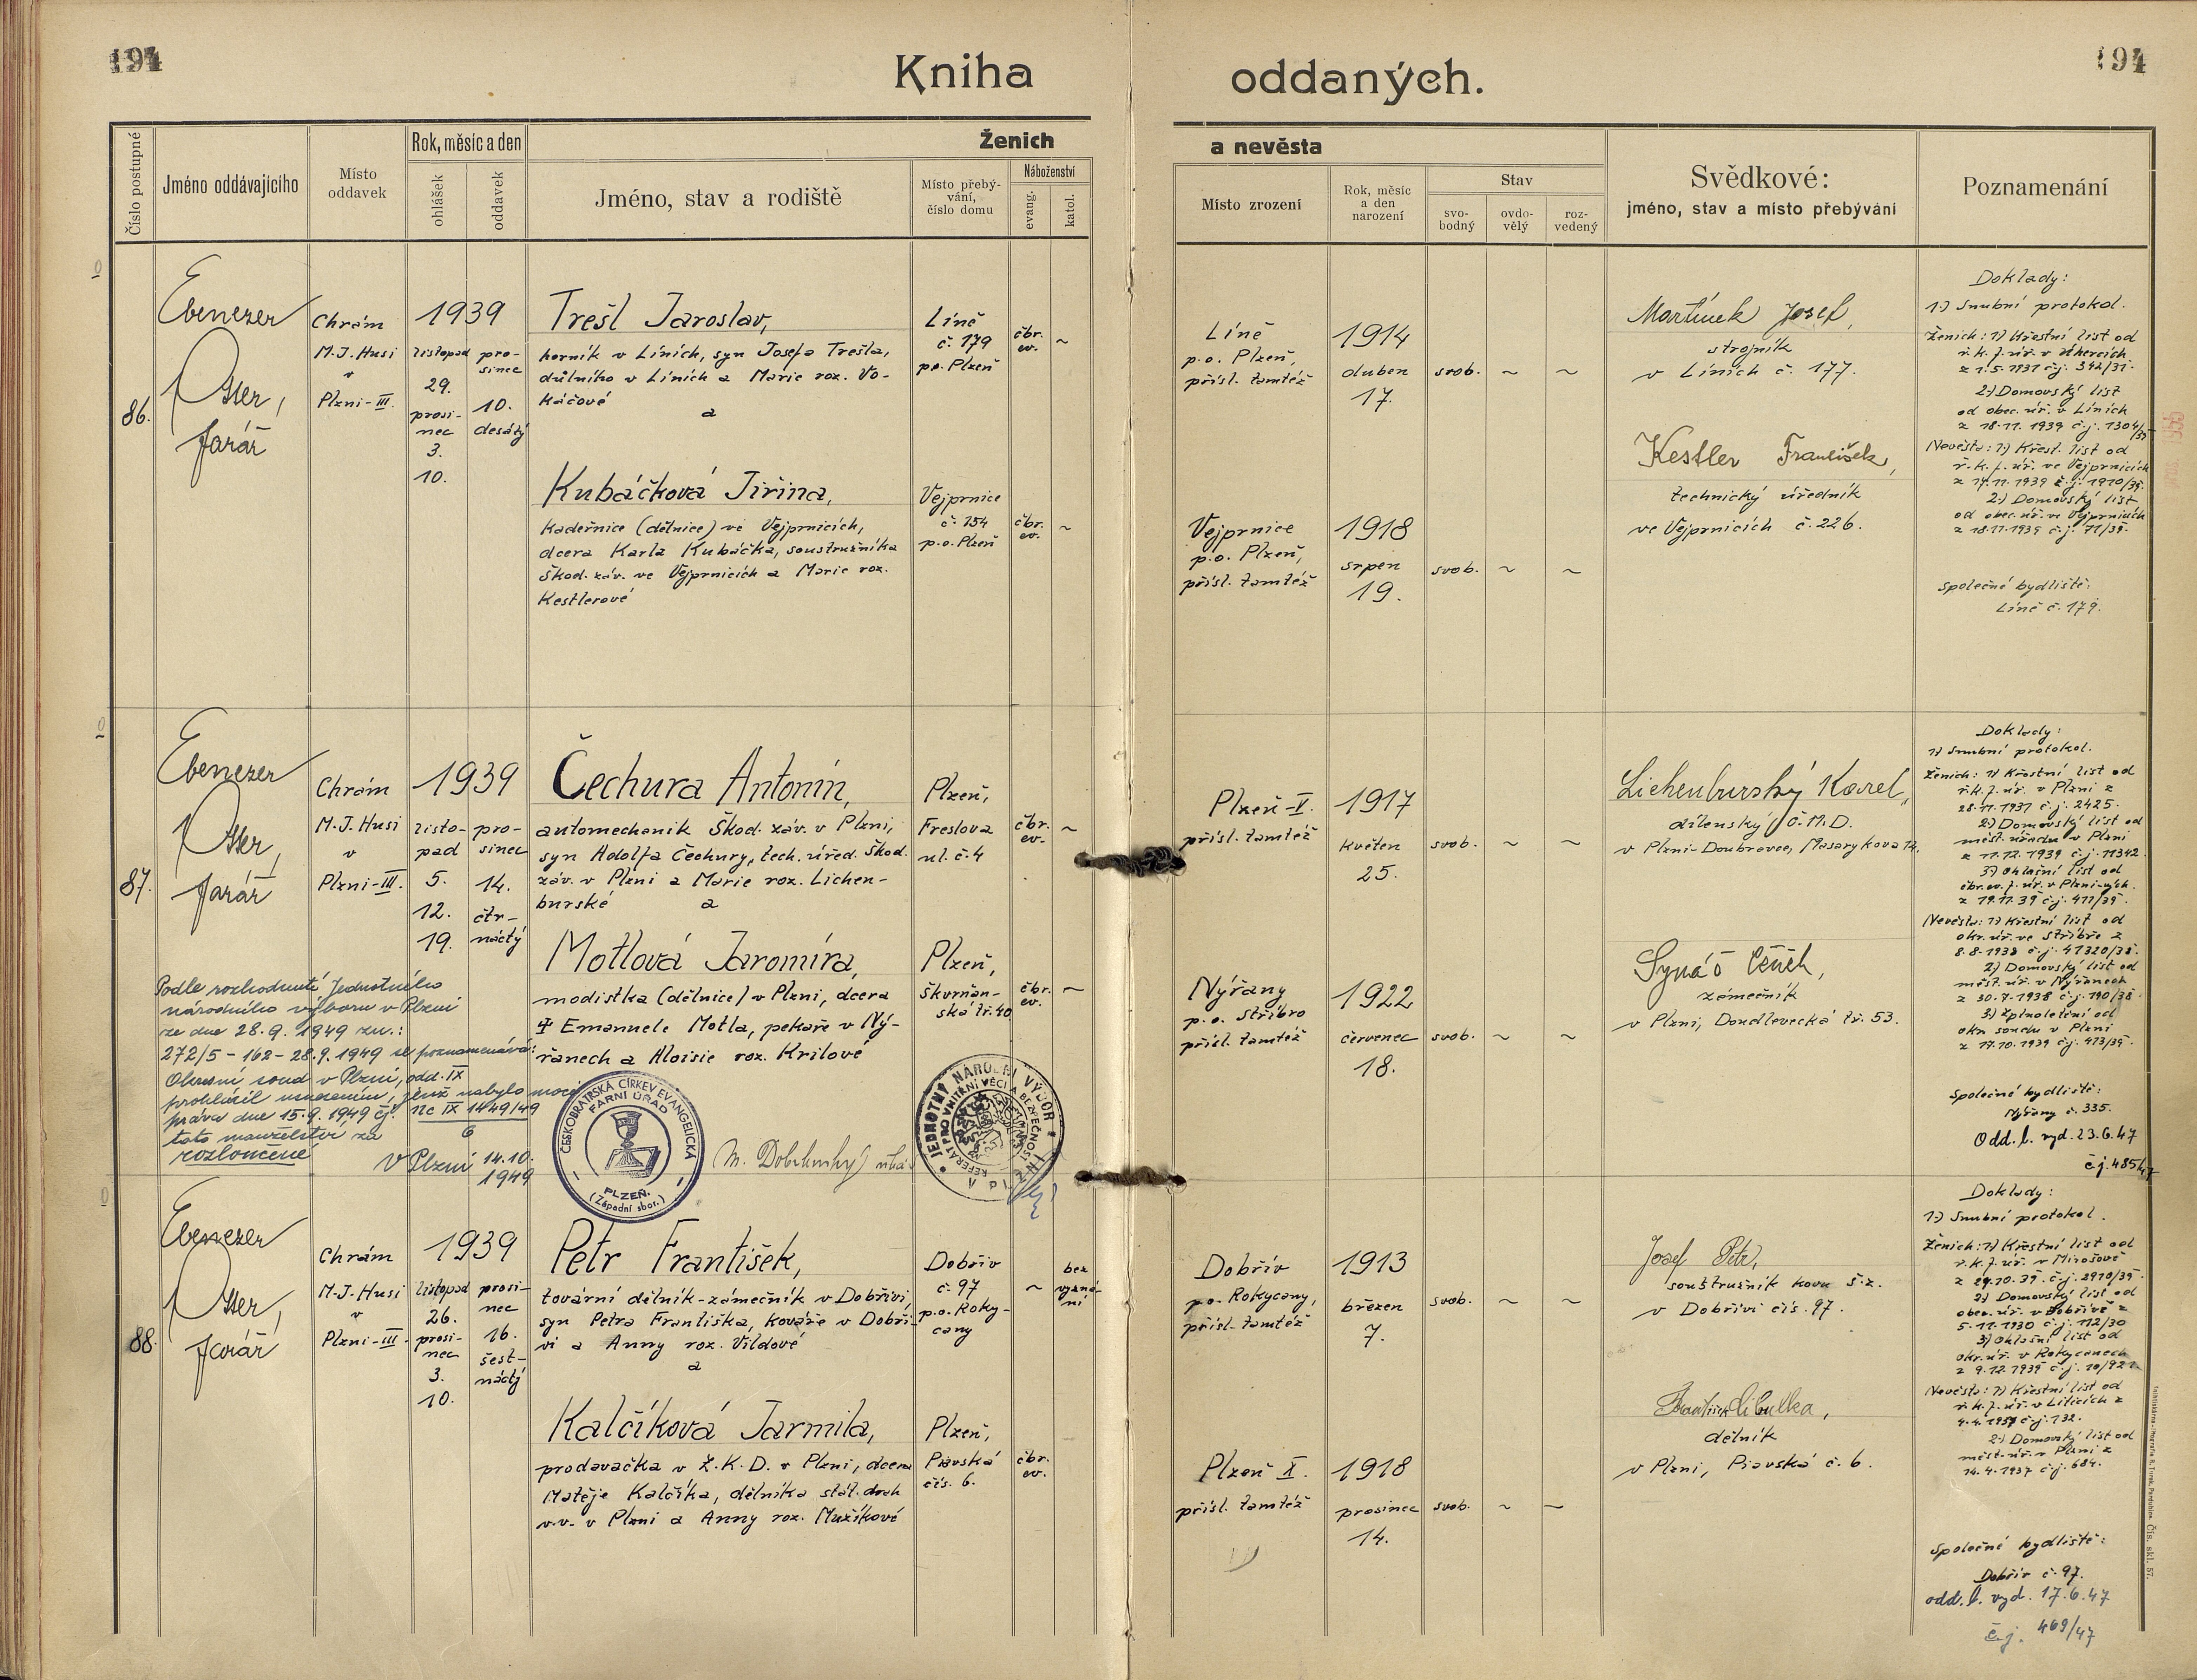 194
Kniha
oddaných.
194
Číslo postupné
Jméno oddávajícího
Místo
oddavek
Rok, měsíc a den
ohlášek
oddavek
Ženich
Jméno, stav a rodiště
Místo přebý-
vání,
číslo domu
Náboženství
evang.
katol.
a nevěsta
Místo zrození
Rok, měsíc
a den
narození
Stav
svo-
bodný
ovdo-
vělý
roz-
vedený
Svědkové:
jméno, stav a místo přebývání
Poznamenání
86.
Ebenezer
Otter,
farář
Chrám
M.J. Husi
v
Plzni-III.
1939
listopad
29.
prosi-
nec
3.
10.
pro-
sinec
10.
desátý
Trešl Jaroslav,
horník v Líních, syn Josefa Trešla,
důlního v Líních a Marie roz. Vo-
káčové
a
Líně
č. 179
p.o. Plzeň
čbr.
ev.
~
Kubáčková Jiřina,
kadeřnice (dělnice) ve Vejprnicích,
dcera Karla Kubáčka, soustružníka
Škod. záv. ve Vejprnicích a Marie roz.
Kestlerové
Vejprnice
č. 154
p.o. Plzeň
čbr.
ev.
~
Líně
p.o. Plzeň,
přísl. tamtéž
1914
duben
17.
svob.
~
~
Vejprnice
p.o. Plzeň,
přísl. tamtéž
1918
srpen
19.
svob.
~
~
Martínek Josef,
strojník
v Líních č. 177.
Kestler František,
technický úředník
ve Vejprnicích č. 226.
Doklady:
1.) Snubní protokol.
Ženich: 1) Křestní list od
ř.k.f.úř. v Úhercích
z 1.5.1931 č.j. 342/31.
2) Domovský list
od obec. úř. v Líních
z 18.11. 1939 č.j. 1304/39
Nevěsta: 1) Křest. list od
ř.k.f.úř. ve Vejprnicích
z 17.11.1939 č.j. 1910/39.
2) Domovský list
od obec. úř. ve Vejprnicích
z 18.11.1939 č.j. 71/39.
Společné bydliště:
Líně č. 179.
87.
Ebenezer
Otter,
farář
Chrám
M.J. Husi
v
Plzni-III.
1939
listo-
pad
5.
12.
19.
pro-
sinec
14.
čtr-
náctý
Čechura Antonín,
automechanik Škod. záv. v Plzni,
syn Adolfa Čechury, tech. úřed. Škod.
záv. v Plzni a Marie roz. Lichen-
burské
a
Plzeň,
Freslova
ul. č. 4
čbr.
ev.
~
Motlová Jaromíra,
modistka (dělnice) v Plzni, dcera
Emanuele Motla, pekaře v Ný-
řanech a Aloisie roz. Krilové
Plzeň,
Škvrňan-
ská tř. 40
čbr.
ev.
~
Podle rozhodnutí Jednotného
národního výboru v Plzni
ze dne 28.9. 1949 zn.:
272/5-162-28.9.1949 se poznamenává:
Okresní soud v Plzni, odd. IX
prohlásil usnesením, jenž nabylo moci
práva dne 15.9.1949 čj. Nc IX 1449/49
6
toto manželství za
rozloučené
V Plzni 14.10.
1949
ČESKOBRATRSKÁ CÍRKEV EVANGELICKÁ
FARNÍ ÚŘAD
PLZEŇ.
(Západní sbor.)
JEDNOTNÝ NÁRODNÍ VÝBOR
V PLZNI
REFERÁT PRO VNITŘNÍ VĚCI A BEZPEČNOST
Plzeň-V.
přísl. tamtéž
1917
květen
25.
svob.
~
~
Nýřany
p.o. Stříbro
přísl. tamtéž
1922
červenec
18.
svob.
~
~
Lichenburský Karel,
dílenský Č.M.D.
v Plzni-Doubravce, Masarykova 12.
Synáč Čeněk,
zámečník
v Plzni, Doudlevecká tř. 53.
Doklady:
1) Snubní protokol.
Ženich: 1) Křestní list od
ř.k.f.úř. v Plzni z
28.11.1931 č.j. 2425.
2) Domovský list od
měst. úřadu v Plzni
z 11.12. 1939 č.j. 11342.
3) Ohlašní list od
čbr.ev.f.úř. v Plzni-vých.
z 19.11.39 č.j. 411/39.
Nevěsta: 1) Křestní list od
okr. úř. ve Stříbře z
8.8.1938 č.j. 41320/38.
2) Domovský list od
měst. úř. v Nýřanech
z 30.7.1938 č.j. 190/38
3) Zplnoletění od
okr. soudu v Plzni
z 17.10.1939 č.j. 473/39.
Společné bydliště:
Nýřany č. 335.
Odd. l. vyd. 23.6.47
č.j. 485/47
88.
Ebenezer
Otter,
farář
Chrám
M.J. Husi
v
Plzni-III.
1939
listopad
26.
prosi-
nec
3.
10.
prosi-
nec
16.
šest-
náctý
Petr František,
tovární dělník-zámečník v Dobřívi,
syn Petra Františka, kováře v Dobří-
vi a Anny roz. Vildové
a
Dobřív
č. 97
p.o. Roky-
cany
~
bez
vyzná-
ní
Kalčíková Jarmila,
prodavačka v Ž.K.D. v Plzni, dcera
Matěje Kalčíka, dělníka stát. drah
v.v. v Plzni a Anny roz. Mužíkové
Plzeň,
Piavská
čís. 6.
čbr.
ev.
Dobřív
p.o. Rokycany,
přísl. tamtéž
1913
březen
7.
svob.
~
~
Plzeň X.
přísl. tamtéž
1918
prosinec
14.
svob.
~
~
Josef Petr,
soustružník kovu š.z.
v Dobřívi čís. 97.
František Cibulka,
dělník
v Plzni, Piavská č. 6.
Doklady:
1.) Snubní protokol.
Ženich: 1) Křestní list od
ř.k.f.úř. v Mirošově
z 29.10.39. č.j. 2910/39
2) Domovský list od
obec. úř. v Dobřívě z
5.11.1930 č.j. 112/30
3) Ohlašní list od
okr. úř. v Rokycanech
z 9.12.1939 č.j. 10/921.
Nevěsta: 1) Křestní list od
ř.k.f.úř. v Liticích z
4.4.1937 č.j. 132.
2.) Domovský list od
měst. úř. v Plzni z
14.4.1937 č.j. 684.
Společné bydliště:
Dobřív č. 97.
odd. l. vyd. 17.6.47
č.j. 469/47
Čís. skl. 57.